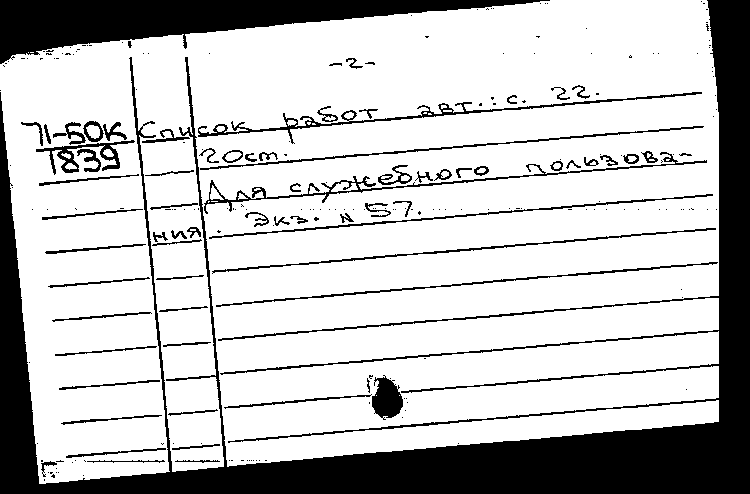 -2-
71-50К Список работ авт.: с. 22.
1839 20ст.
Для служебного пользова-
ния. Экз. № 57.